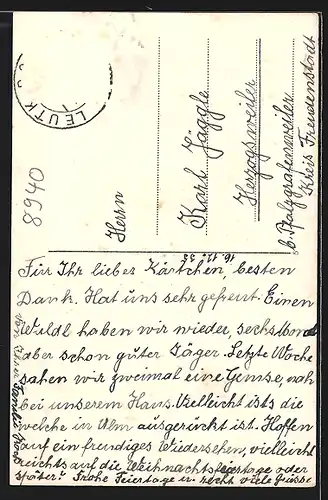 LEUTK
8940
Herrn
Karl Jäggle
Herzogsweiler
b. Pfalzgrafenweiler
Kreis Freudenstadt
16. 12. 55
Für Ihr liebes Kärtchen, besten
Dank. Hat uns sehr gefreut. Einen
Waldl haben wir wieder, sechs Monat
aber schon guter Jäger. Letzte Woche
sahen wir zweimal eine Gemse, nah
bei unserem Haus. Vielleicht ist's die
welche in Ulm ausgerückt ist. Hoffen
auf ein freudiges Wiedersehen, vielleicht
reicht's auf die Weihnachtsfeiertage oder
später. Frohe Feiertage u. recht viele Grüsse